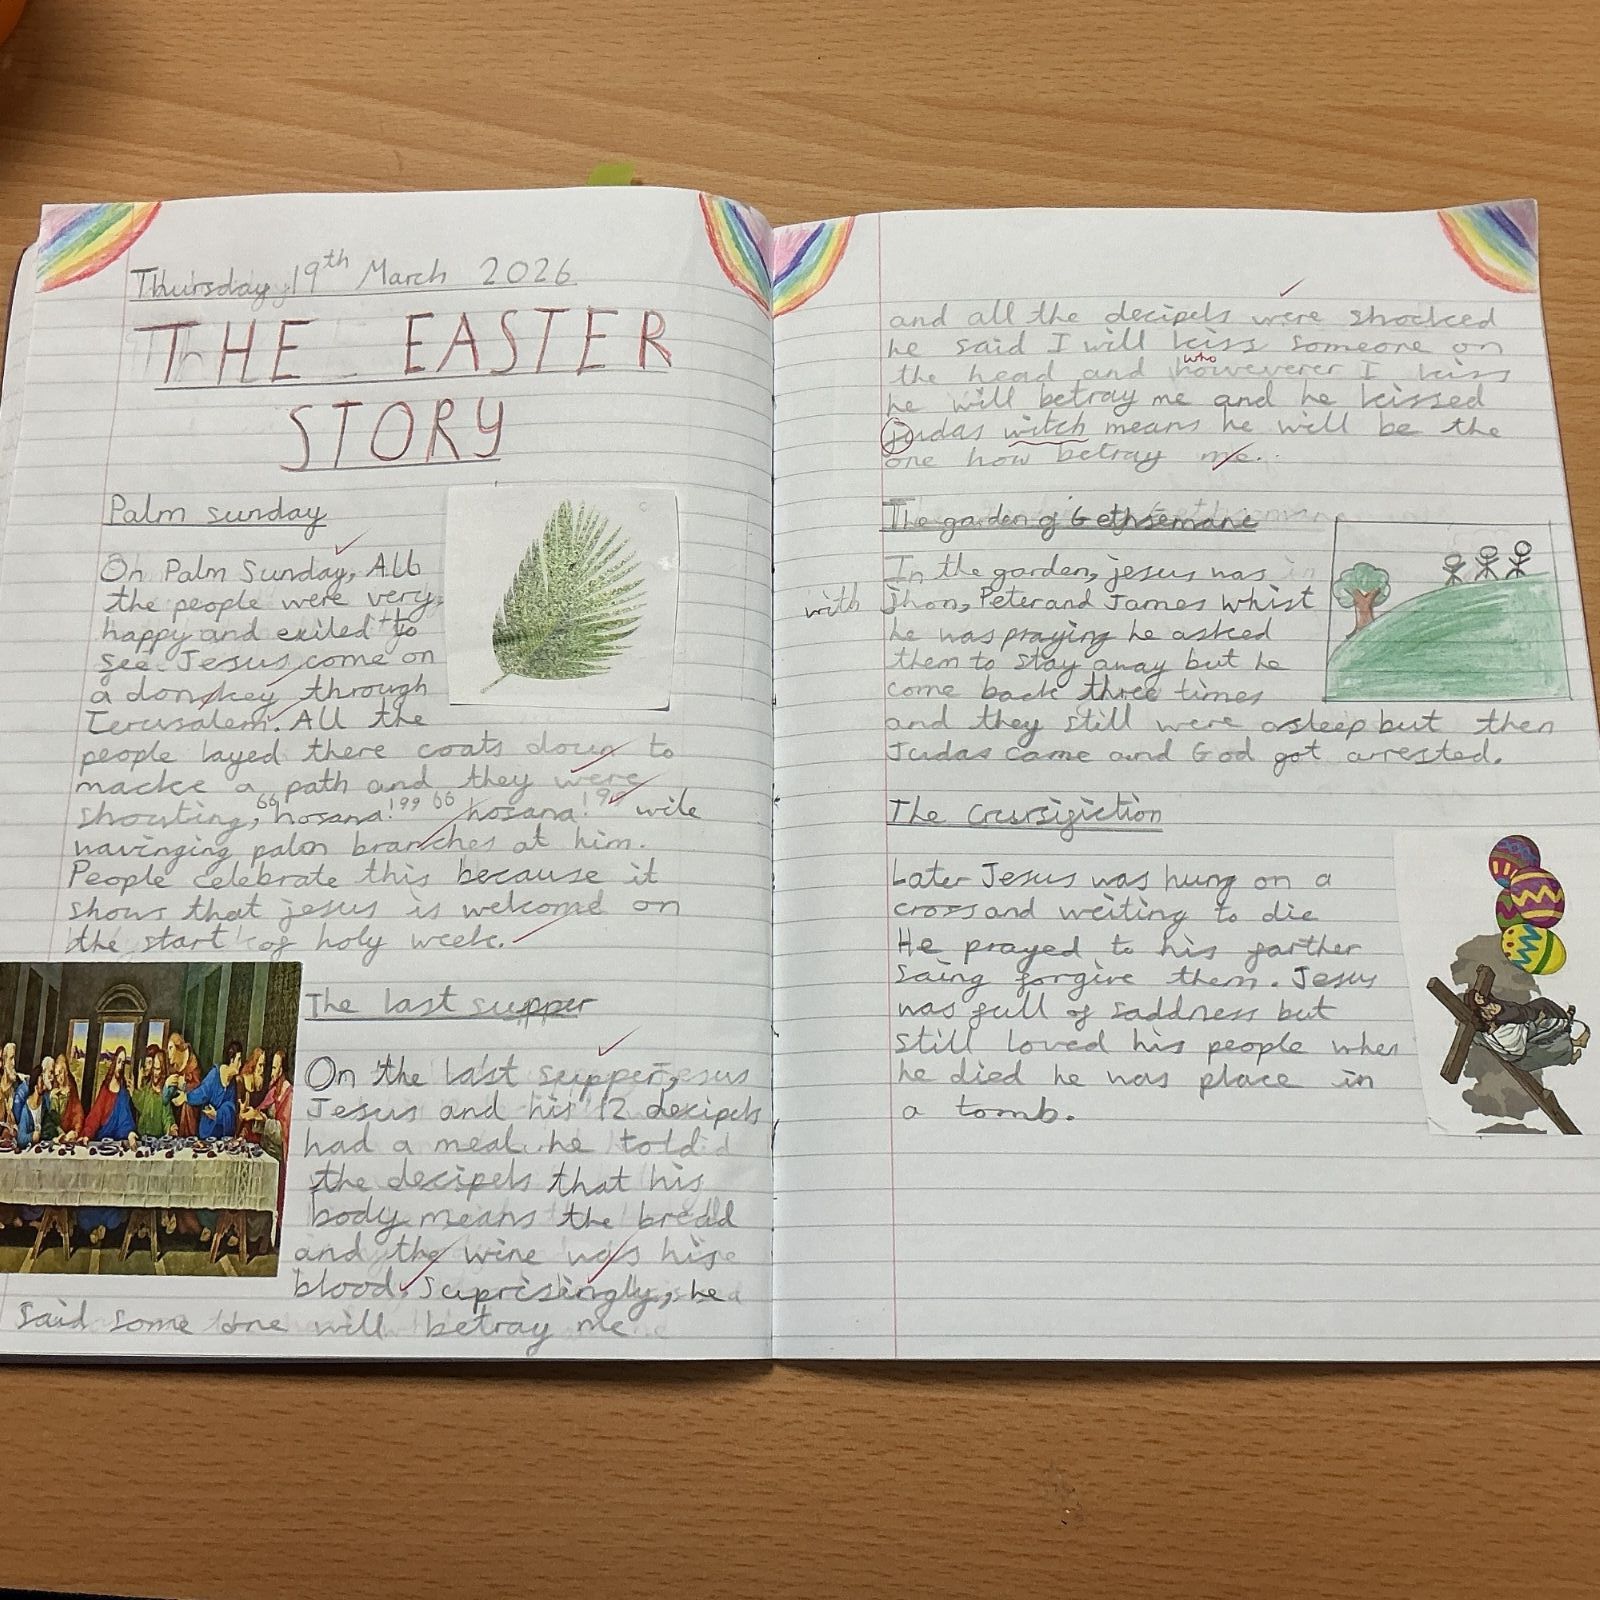 Thursday 19th March 2026
THE EASTER
STORY
Palm sunday
On Palm Sunday, All
the people were very,
happy and exiled to
see Jesus come on
a donkey through
Jerusalem. All the
people layed there coats down to
mackce a path and they were
shouting, "hosana!" "hosana!" wile
wavinging palm branches at him.
People celebrate this because it
shows that jesus is welcomed on
the start of holy week.
The last supper
On the last supper,
Jesus and his 12 decipels
had a meal he told
the decipels that his
body means the bread
and the wine was his
blood. Suprisingly, he
said some one will betray me
and all the decipels were shocked
he said I will kiss someone on
who
the head and howeverer I kiss
he will betray me and he kissed
judas witch means he will be the
one how betray me.
The garden of Gethsemane
In the garden, jesus was
with Jhon, Peter and James whist
he was praying he asked
them to stay away but he
come back three times
and they still were asleep but then
Judas came and God got arrested.
The Crursifiction
Later Jesus was hung on a
cross and weiting to die
He prayed to his farther
saing forgive them. Jesus
was full of saddness but
still loved his people when
he died he was place in
a tomb.